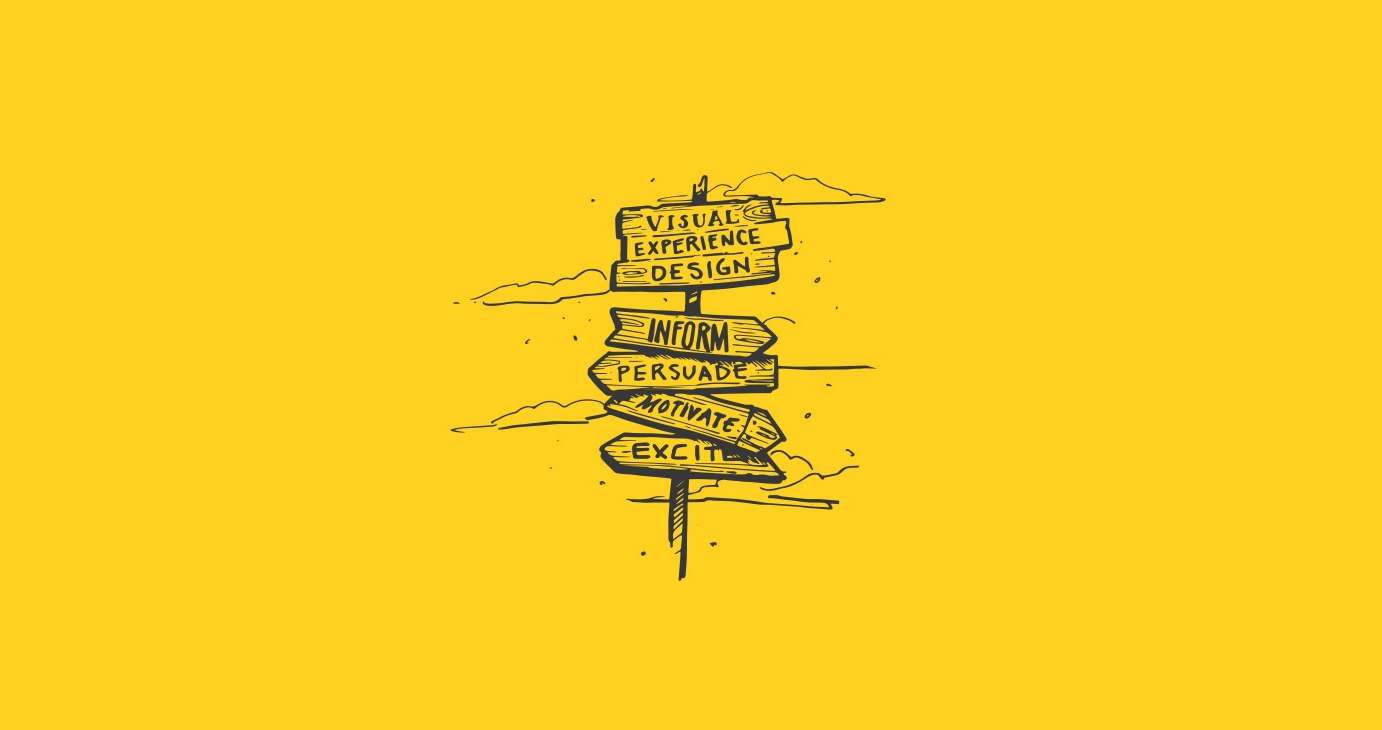 VISUAL
EXPERIENCE
DESIGN
INFORM
PERSUADE
MOTIVATE
EXCITE